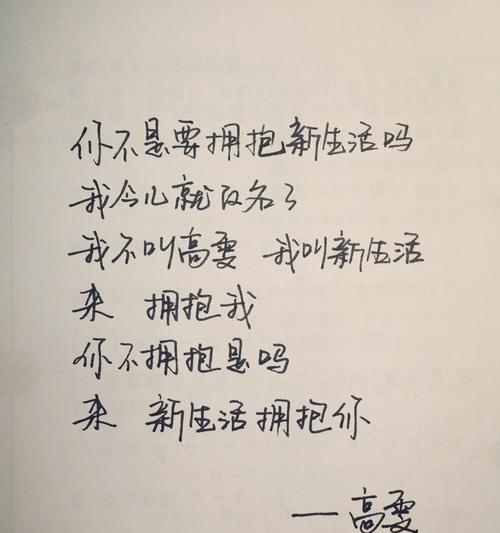 你不是要拥抱新生活吗
我今儿就改名了
我不叫高雯 我叫新生活
来 拥抱我
你不拥抱是吗
来 新生活拥抱你
——高雯